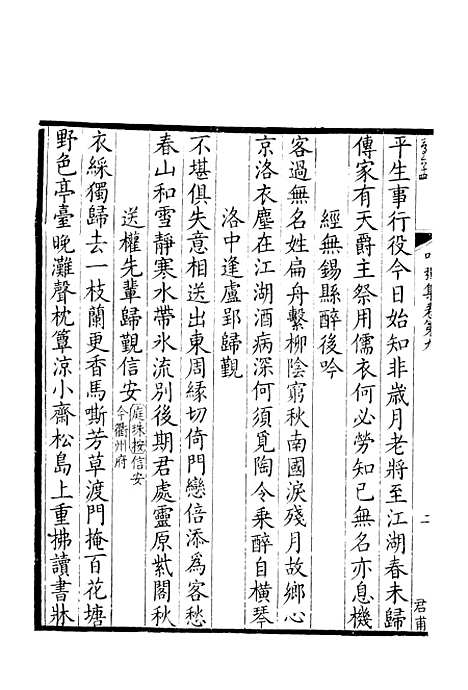 平生事行役今日始知非歲月老將至江湖春未歸
傳家有天爵主祭用儒衣何必勞知己無名亦息機
經無錫縣醉後吟
客過無名姓扁舟繫柳陰窮秋南國淚殘月故鄉心
京洛衣塵在江湖酒病深何須覓陶令乘醉自橫琴
洛中逢盧郢歸覲
不堪俱失意相送出東周緣切倚門戀倍添爲客愁
春山和雪靜寒水帶氷流別後期君處靈原紫閣秋
送權先輩歸覲信安庭珠按信安今衢州府
衣綵獨歸去一枝蘭更香馬嘶芳草渡門掩百花塘
野色亭臺晚灘聲枕簟涼小齋松島上重拂讀書牀
二
君甫